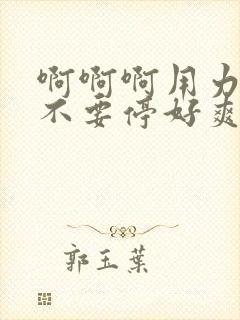 啊啊啊用力
不要停好爽
郭玉葉